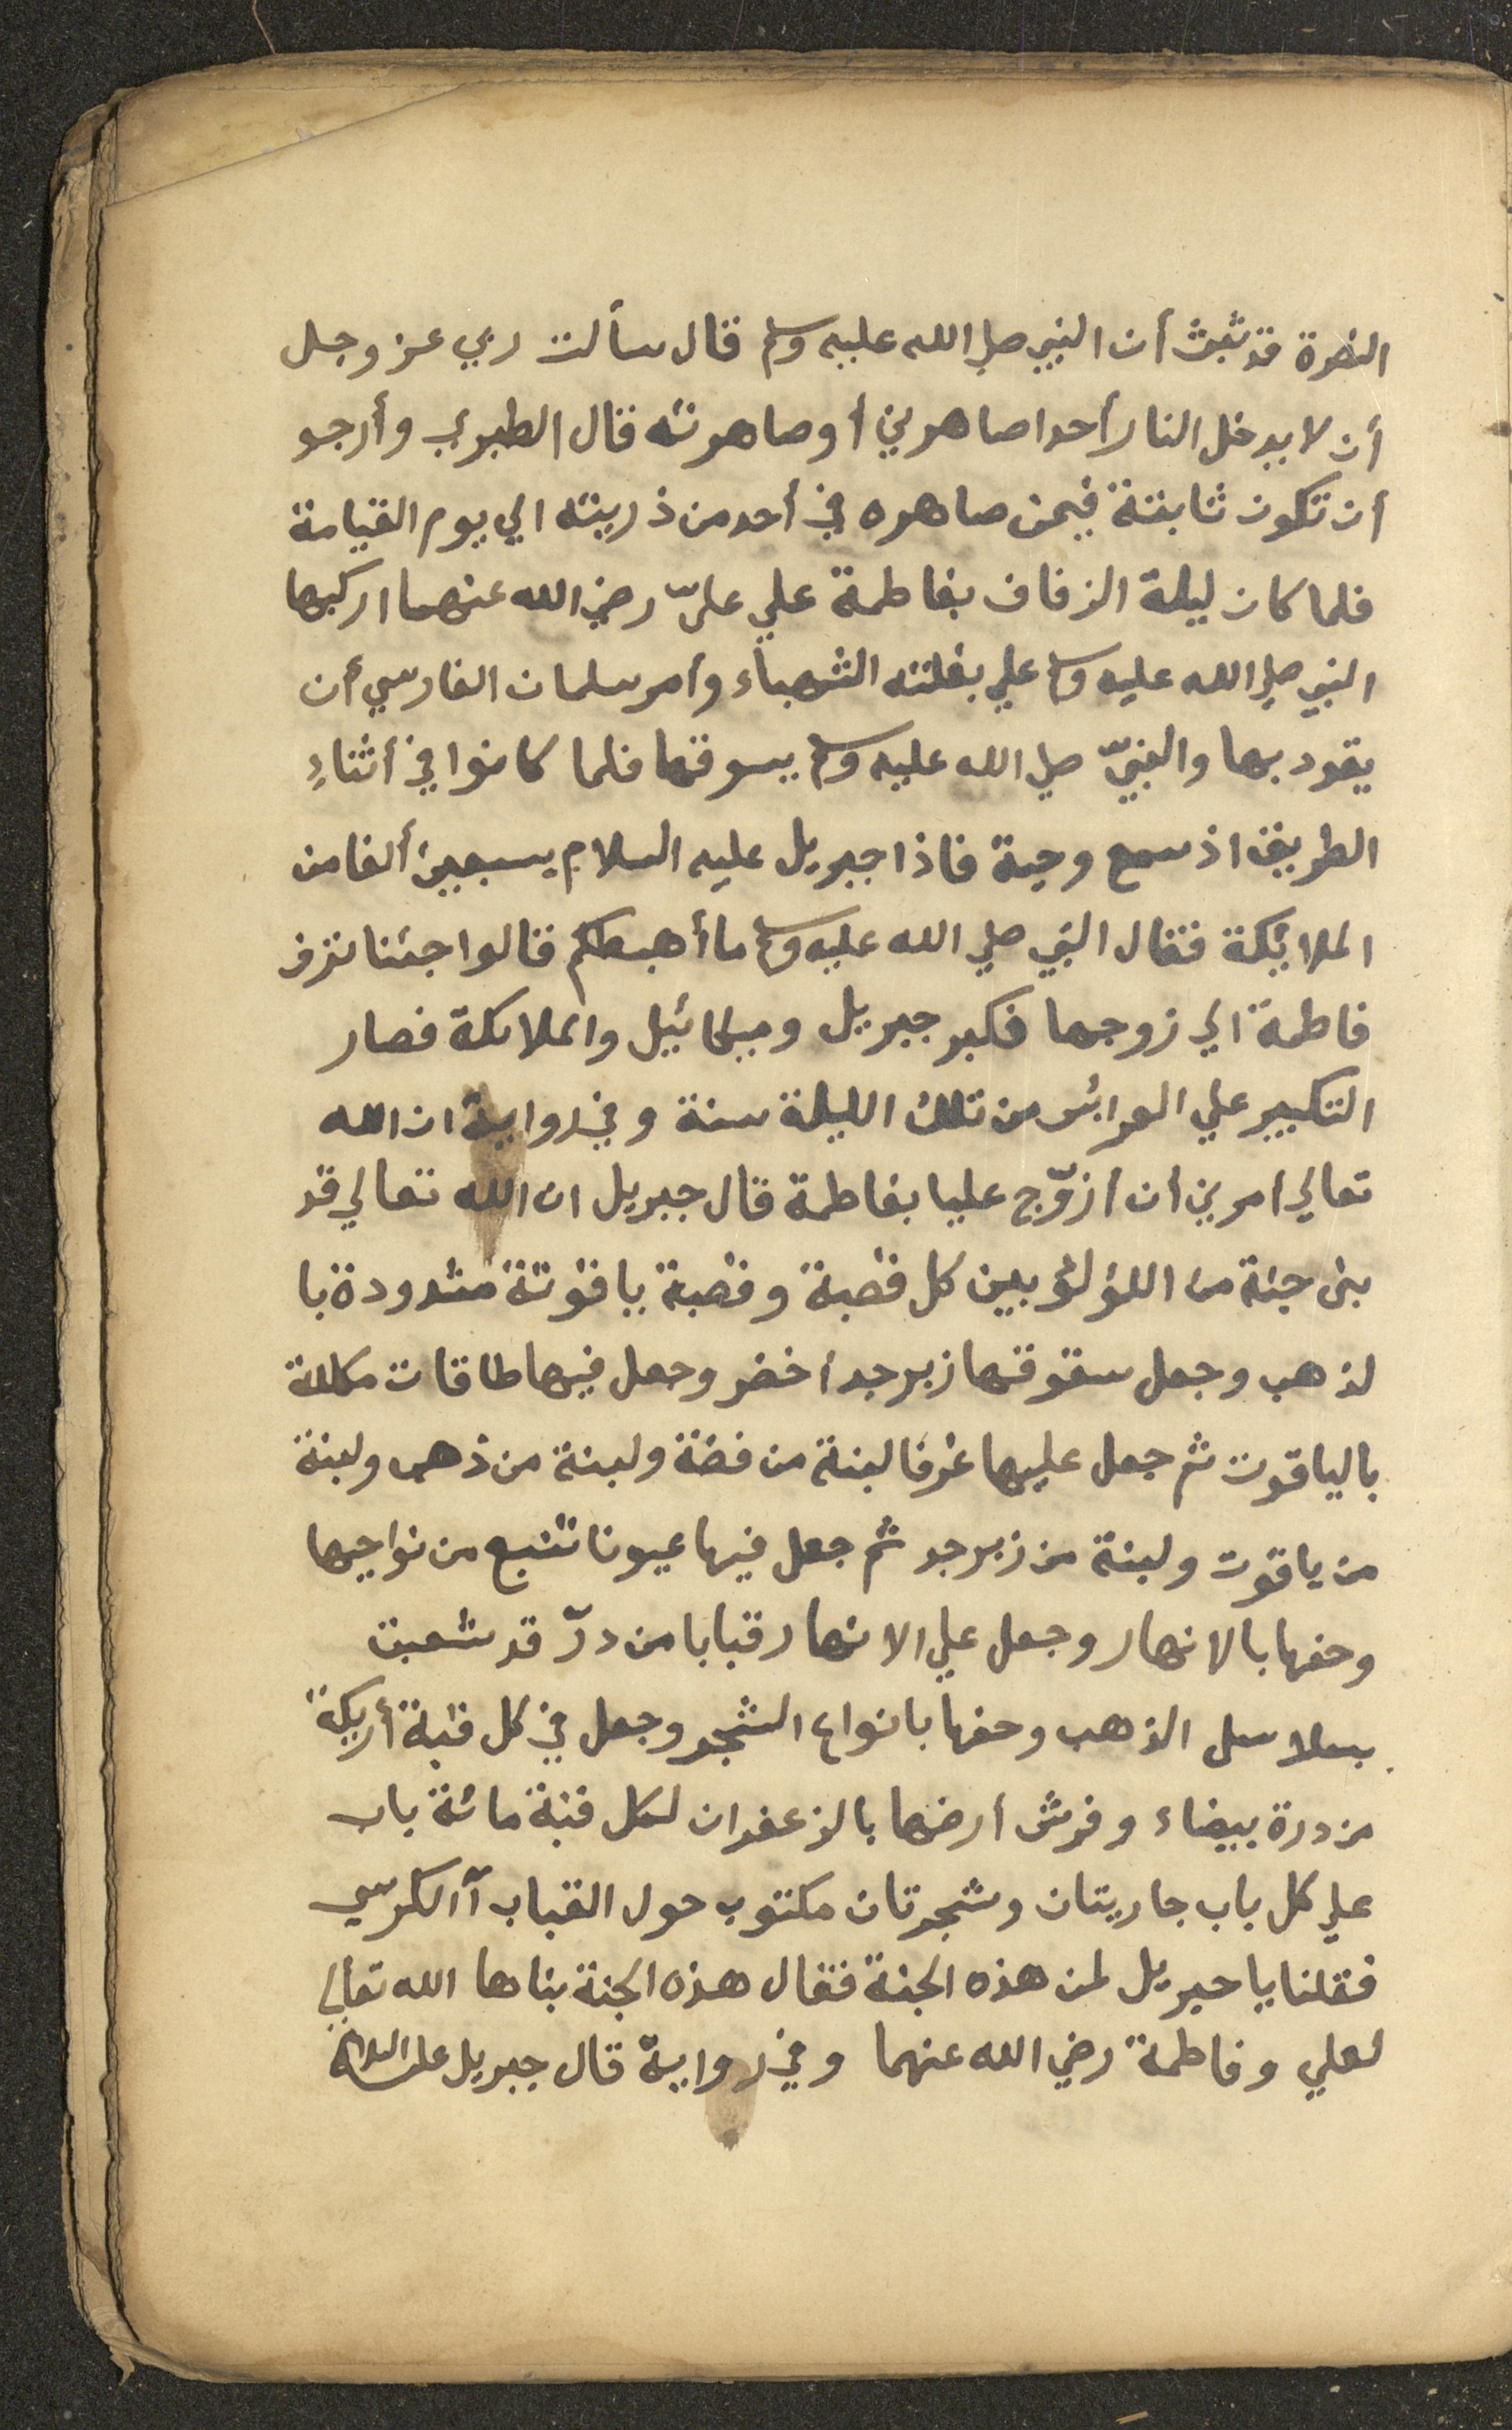 النضرة قد ثبت أن النبي صلي الله عليه وسلم قال سألت ربي عز وجل
أن لا يدخل النار أحدا صاهرني أو صاهرته قال الطبري وأرجو
أن تكون ثابتة فيمن صاهره في أحد من ذريته الي يوم القيامة
فلما كان ليلة الزفاف بفاطمة علي عليّ رضي الله عنهما اركبها
النبي صلي الله عليه وسلم علي بغلته الشهباء وأمر سلمان الفارسي أن
يقود بها والنبيّ صلي الله عليه وسلم يسوقها فلما كانوا في أثناءِ
الطريق اذ سمع وجبة فاذا جبريل عليه السلام بسبعين ألفا من
الملائكة فقال النبي صلي الله عليه وسلم ما أهبطكم قالوا جئنا نزف
فاطمة الي زوجها فكبر جبريل وميكائيل والملائكة فصار
التكبير علي العرائس من تلك الليلة سنة وفي رواية ان الله
تعالي أمرني أن أزوّج عليا بفاطمة قال جبريل ان الله تعالي قد
بنى جنة من اللؤلؤ بين كل قصبة وقصبة ياقوتة مشدودة با
لذهب وجعل سقوقها زبرجد أخضر وجعل فيها طاقات مكللة
بالياقوت ثم جعل عليها غرفا لبنة من فضة ولبنة من ذهب ولبنة
من ياقوت ولبنة من زبرجد ثم جعل فيها عيونا تنبع من نواحيها
وحفها بالانهار وجعل علي الانهار قبابا من درّ قد شعبت
بسلاسل الذهب وحفها بانواع الشجر وجعل في كل قبة أريكة
من درة بيضاء وفرش أرضها بالزعفران لكل قبة مائة باب
علي كل باب جاريتان وشجرتان مكتوب حول القباب آ الكرسي
فقلنا يا جبريل لمن هذه الجنة فقال هذه الجنة بناها الله تعالي
لعلي وفاطمة رضي الله عنهما وفي رواية قال جبريل عليه السلام